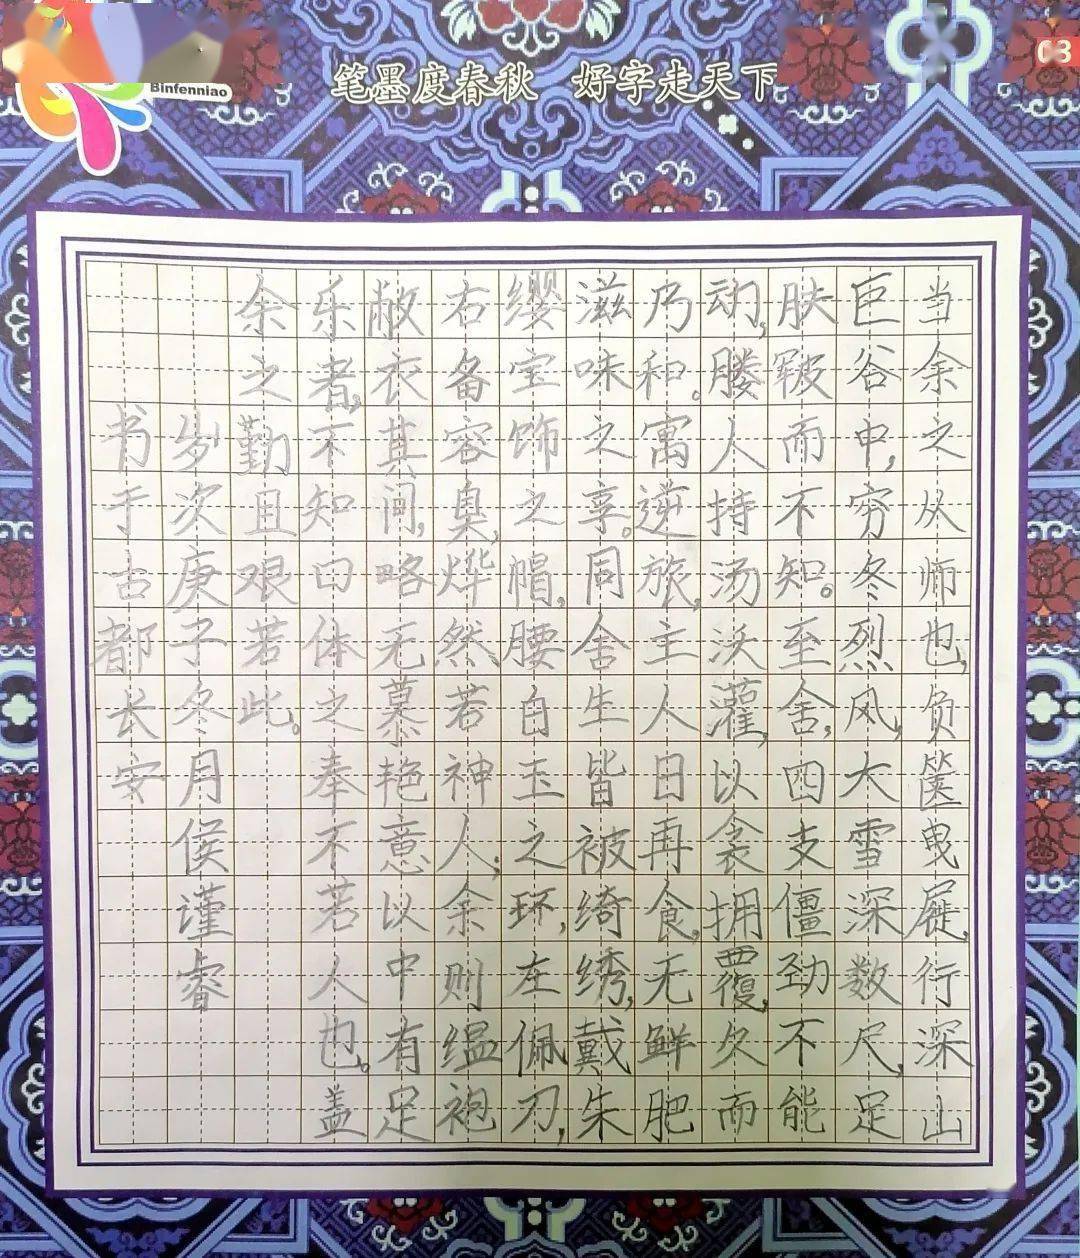 Binfenniao
笔墨度春秋　好字走天下
03
当余之从师也，负箧曳屣，行深山
巨谷中，穷冬烈风，大雪深数尺，足
肤皲而不知。至舍，四支僵劲不能
动，媵人持汤沃灌，以衾拥覆，久而
乃和。寓逆旅，主人日再食，无鲜肥
滋味之享。同舍生皆被绮绣，戴朱
缨宝饰之帽，腰白玉之环，左佩刀，
右备容臭，烨然若神人；余则缊袍
敝衣其间，略无慕艳意以中有足
乐者，不知口体之奉不若人也。盖
余之勤且艰若此。
岁次庚子冬月侯谨睿
书于古都长安